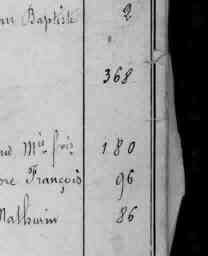 Baptiste 2
368
Mie frois 180
François 96
Mathurin 86